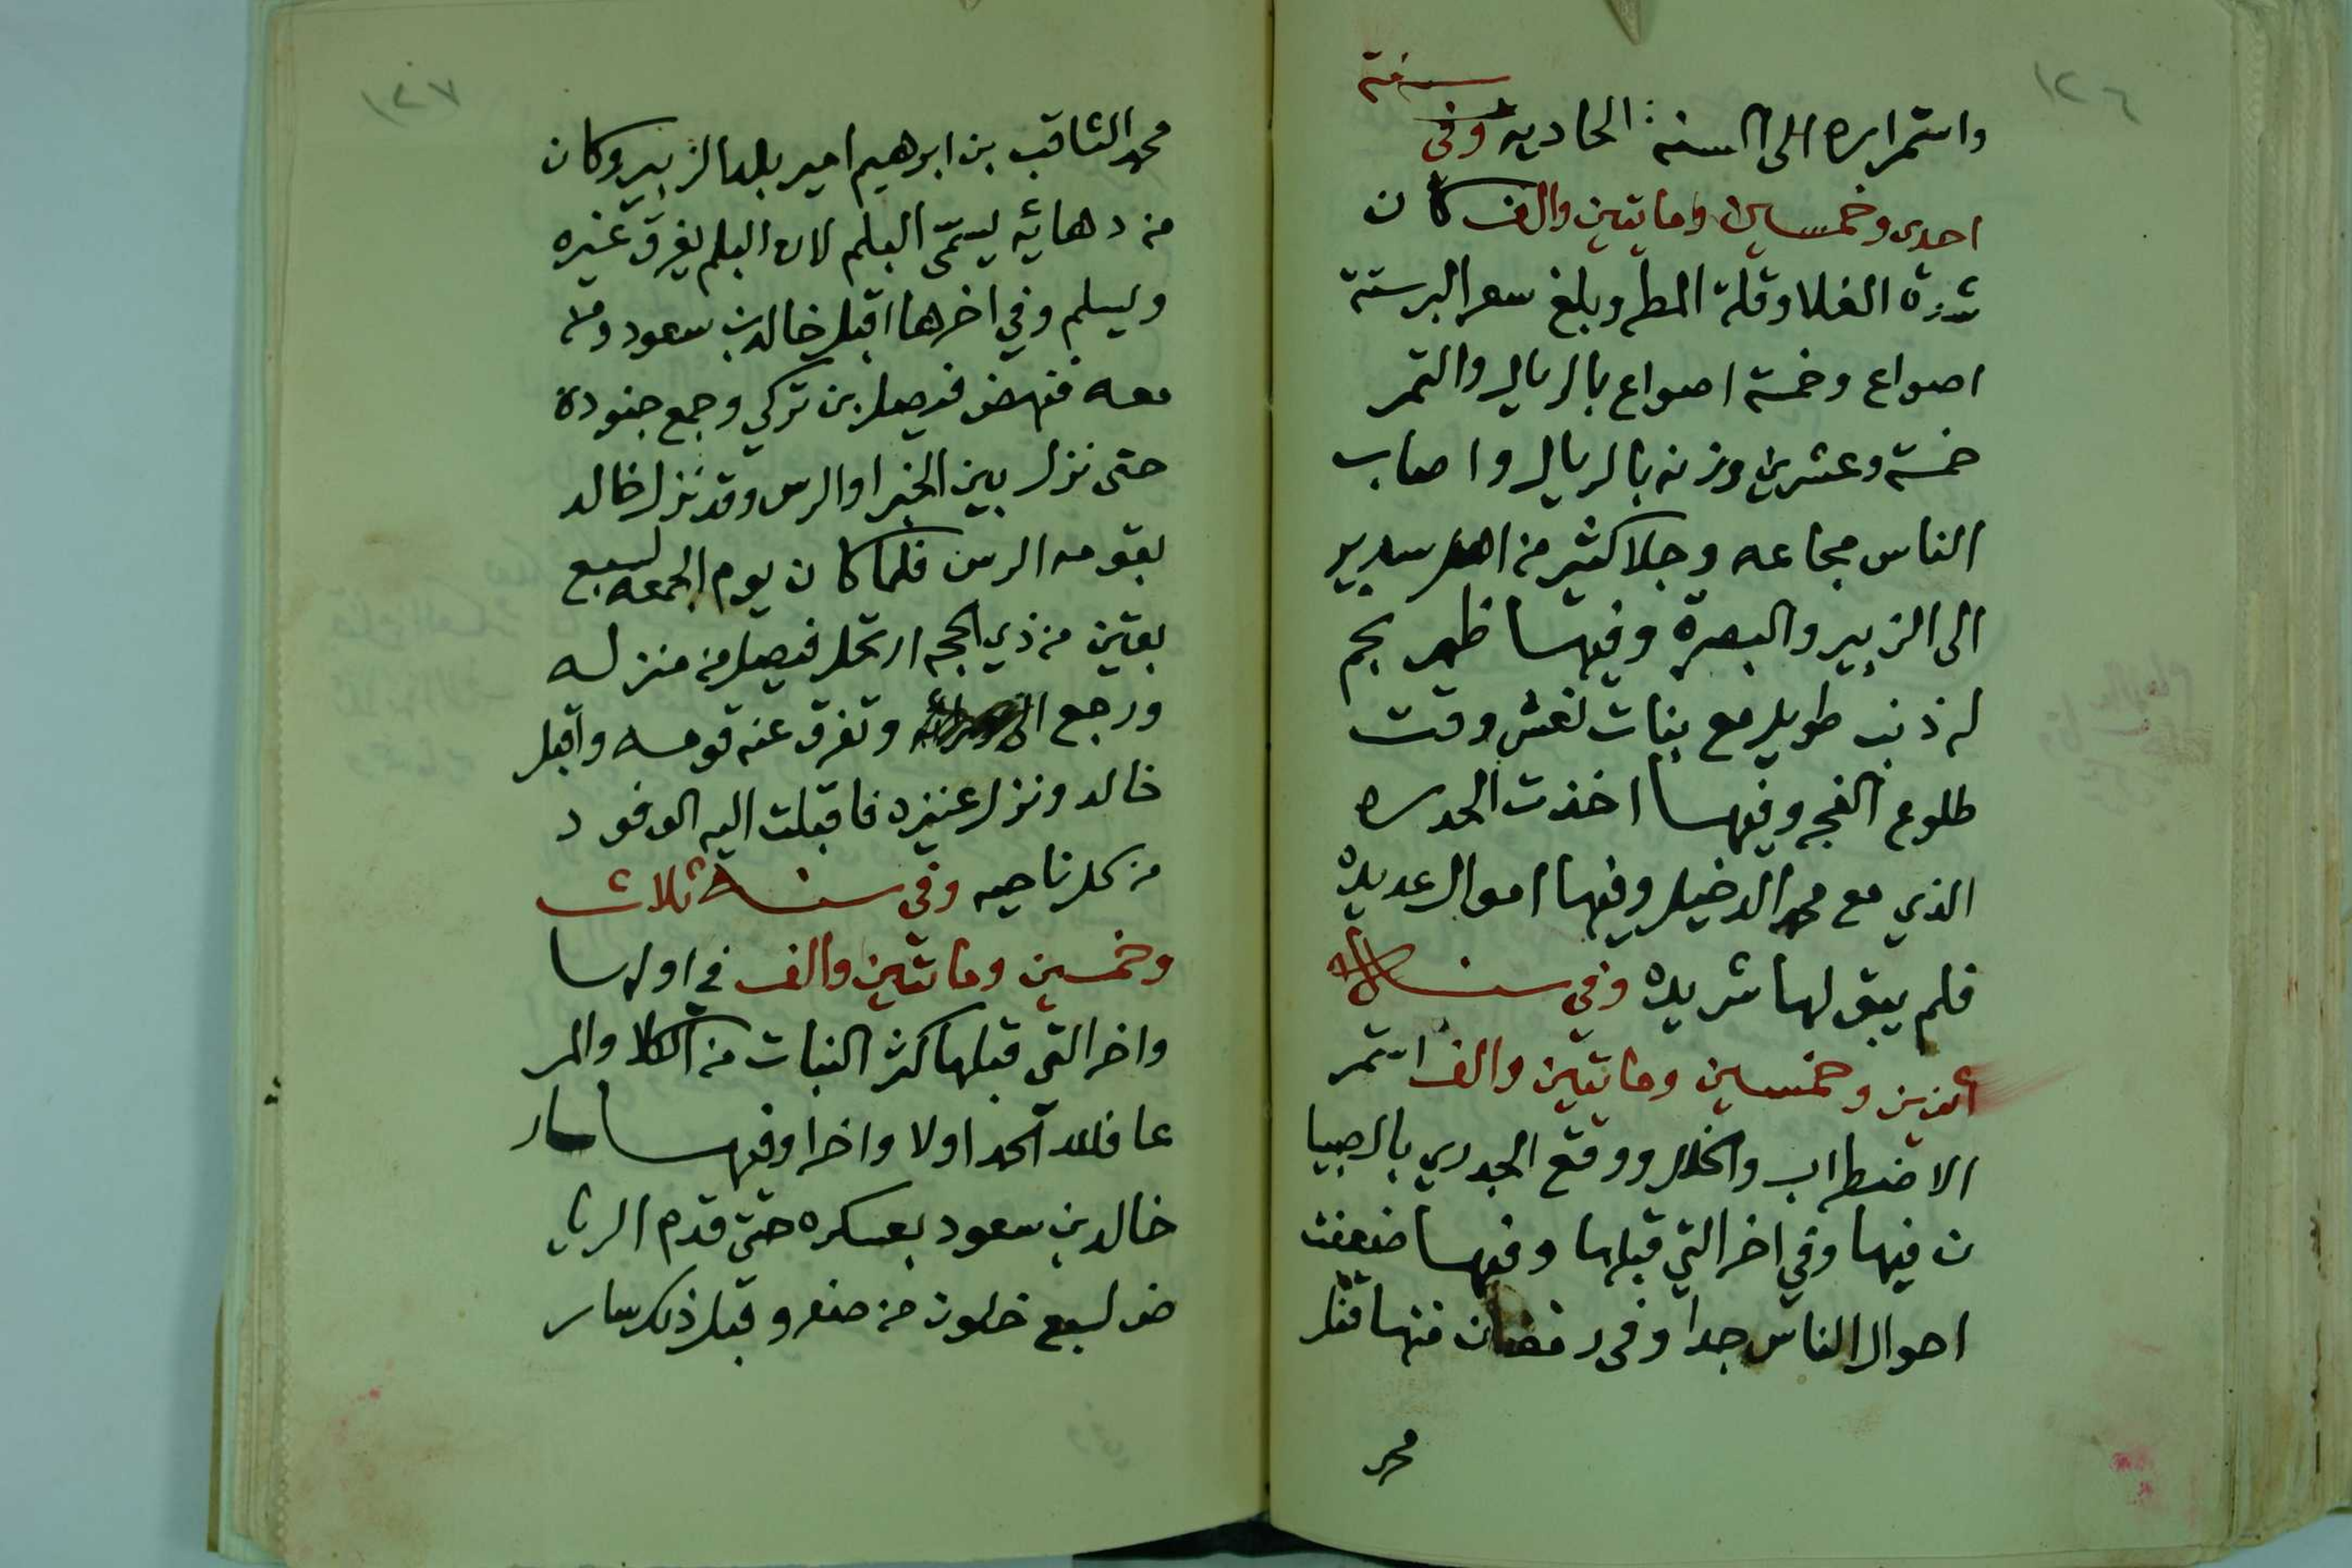 ١٢٦
سنة
واستمراره الى السنه الحاديه وفى
احدى وخمسين ومايتين والف كان
شدة الغلا وقلة المطر وبلغ سعر البر ستة
اصواع وخمسة اصواع بالريال والتمر
خمسة وعشرين وزنه بالريال واصاب
الناس مجاعه وجلا كثير من اهل سدير
الى الزبير والبصرة وفيها ظهر نجم
له ذنب طويل مع بنات نعش وقت
طلوع الفجر وفيها اخذت الحدره
الذي مع محمد الدخيل وفيها اموال عديدة
فلم يبق لها شريده وفي سنة
اثنين وخمسين ومايتين والف استمر
الاضطراب والخلل ووقع الجدري بالصبيا
ن فيها وفي اخر التي قبلها وفيها ضعفت
احوال الناس جدا وفى رمضان منها قتل
محمد
١٢٧
محمد الثاقب بن ابرهيم امير بلد الزبير وكان
من دهائه يسمّى البلم لان البلم يغرق غيره
ويسلم وفي اخرها اقبل خالد بن سعود ومن
معه فنهض فيصل بن تركي وجمع جنوده
حتى نزل بين الخبرا والرس وقد نزل خالد
بقومه الرس فلما كان يوم الجمعه لسبع
بقين من ذي الحجه ارتحل فيصل من منزله
ورجع الى وتفرق عنه قومه واقبل
خالد ونزل عنيزه فاقبلت اليه الوفود
من كل ناحيه وفي سنة ثلاث
وخمسين ومائتين والف في اولها
واخر التي قبلها كثر النبات من الكلا والمر
عا فلله الحمد اولا واخرا وفيها سار
خالد بن سعود بعسكره حتى قدم الريا
ض لسبع خلون من صفر وقبل ذلك سار